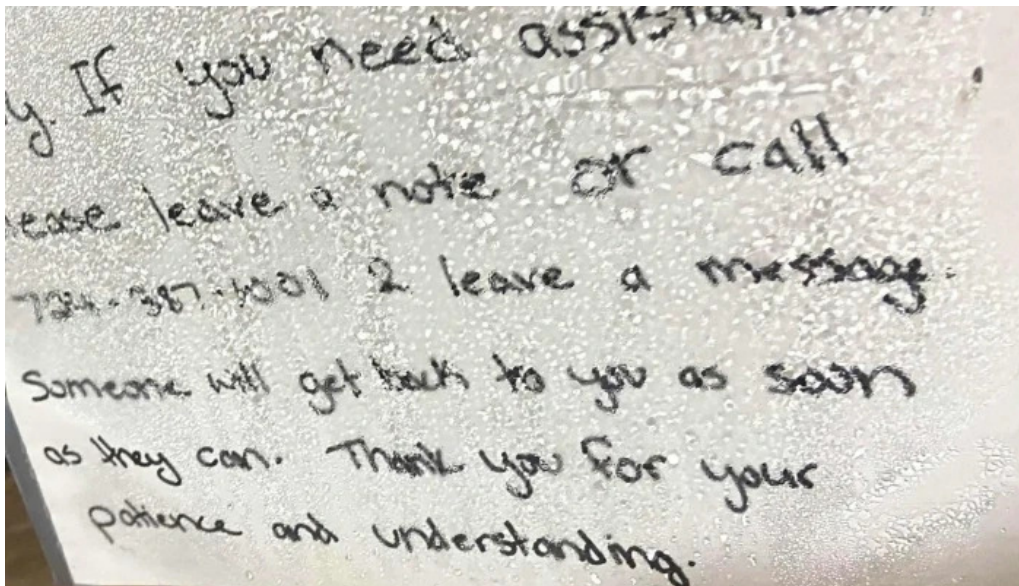 y. If you need assistance
ease leave a note or call
724-387-1001 2 leave a message.
Someone will get back to you as soon
as they can. Thank you for your
patience and understanding.